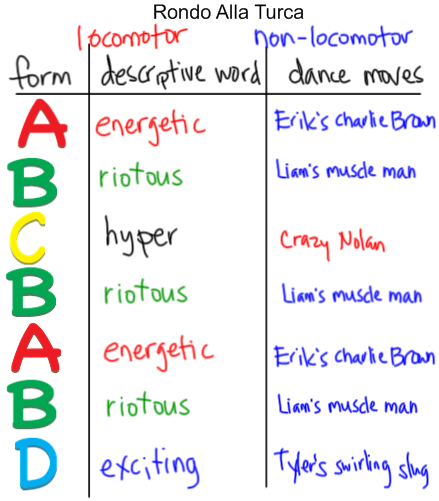 Rondo Alla Turca
locomotor non-locomotor
form descriptive word dance moves
A energetic Erik's Charlie Brown
B riotous Liam's muscle man
C hyper Crazy Nolan
B riotous Liam's muscle man
A energetic Erik's Charlie Brown
B riotous Liam's muscle man
D exciting Tyler's swirling slug